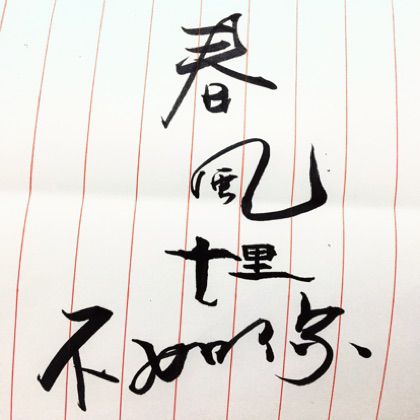 春
風
十里
不如你、